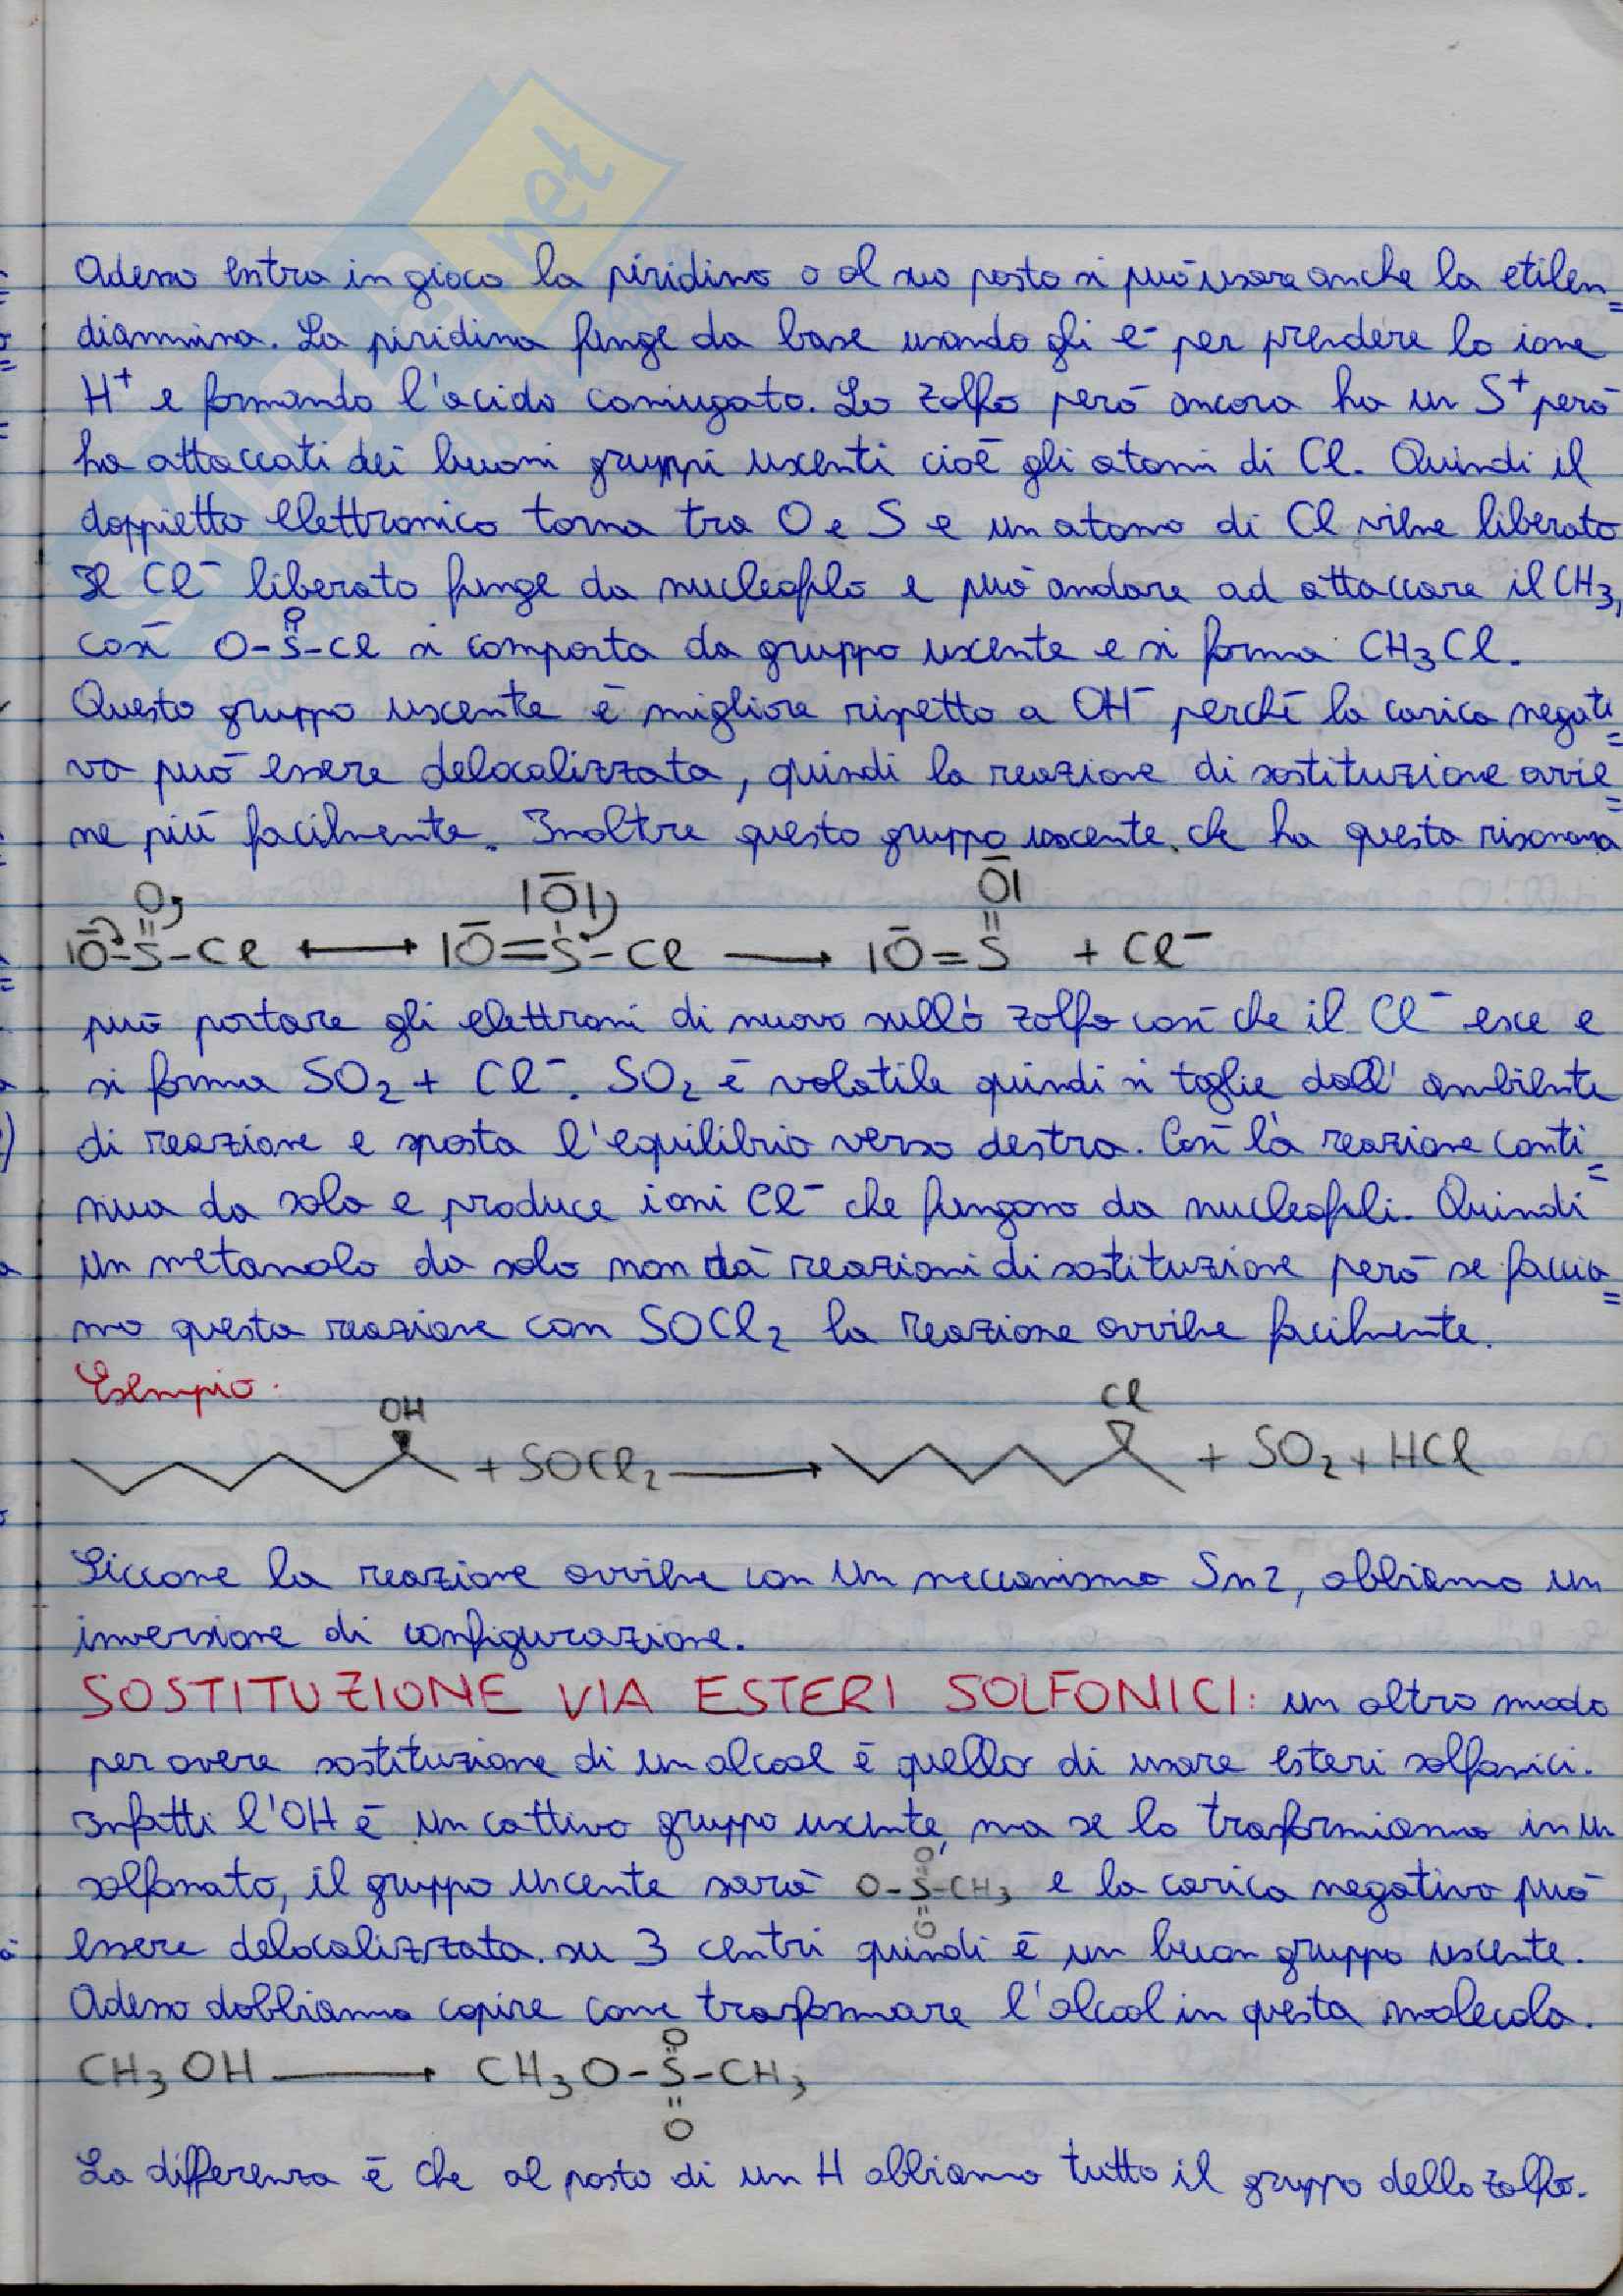 Adesso entra in gioco la piridina o al suo posto si può usare anche la etilen=
diammina. La piridina funge da base usando gli e⁻ per prendere lo ione
H⁺ e formando l'acido coniugato. Lo zolfo però ancora ha un S⁺ però
ha attaccati dei buoni gruppi uscenti cioè gli atomi di Cl. Quindi il
doppietto elettronico torna tra O e S e un atomo di Cl viene liberato
Il Cl⁻ liberato funge da nucleofilo e può andare ad attaccare il CH₃,
O
così O-S-Cl si comporta da gruppo uscente e si forma CH₃Cl.
Questo gruppo uscente è migliore rispetto a OH⁻ perché la carica negati=
va può essere delocalizzata, quindi la reazione di sostituzione avvie=
ne più facilmente. Inoltre questo gruppo uscente che ha questa risonanza
O |O| O|
|O-S-Cl ⟷ |O=S-Cl ⟶ |O=S + Cl⁻
può portare gli elettroni di nuovo sullo zolfo così che il Cl⁻ esce e
si forma SO₂ + Cl⁻. SO₂ è volatile quindi si toglie dall' ambiente
di reazione e sposta l'equilibrio verso destra. Così la reazione conti=
nua da sola e produce ioni Cl⁻ che fungono da nucleofili. Quindi
un metanolo da solo non dà reazioni di sostituzione però se faccia=
mo questa reazione con SOCl₂ la reazione avviene facilmente.
Esempio:
OH Cl
+ SOCl₂ ⟶ + SO₂ + HCl
Siccome la reazione avviene con un meccanismo Sn2, abbiamo un
inversione di configurazione.
SOSTITUZIONE VIA ESTERI SOLFONICI: un altro modo
per avere sostituzione di un alcool è quello di usare esteri solfonici.
Infatti l'OH è un cattivo gruppo uscente, ma se lo trasformiamo in un
O
solfonato, il gruppo uscente sarà O-S-CH₃ e la carica negativa può
O
essere delocalizzata su 3 centri quindi è un buon gruppo uscente.
Adesso dobbiamo capire come trasformare l'alcol in questa molecola.
O
CH₃OH ⟶ CH₃O-S-CH₃
O
La differenza è che al posto di un H abbiamo tutto il gruppo dello zolfo.